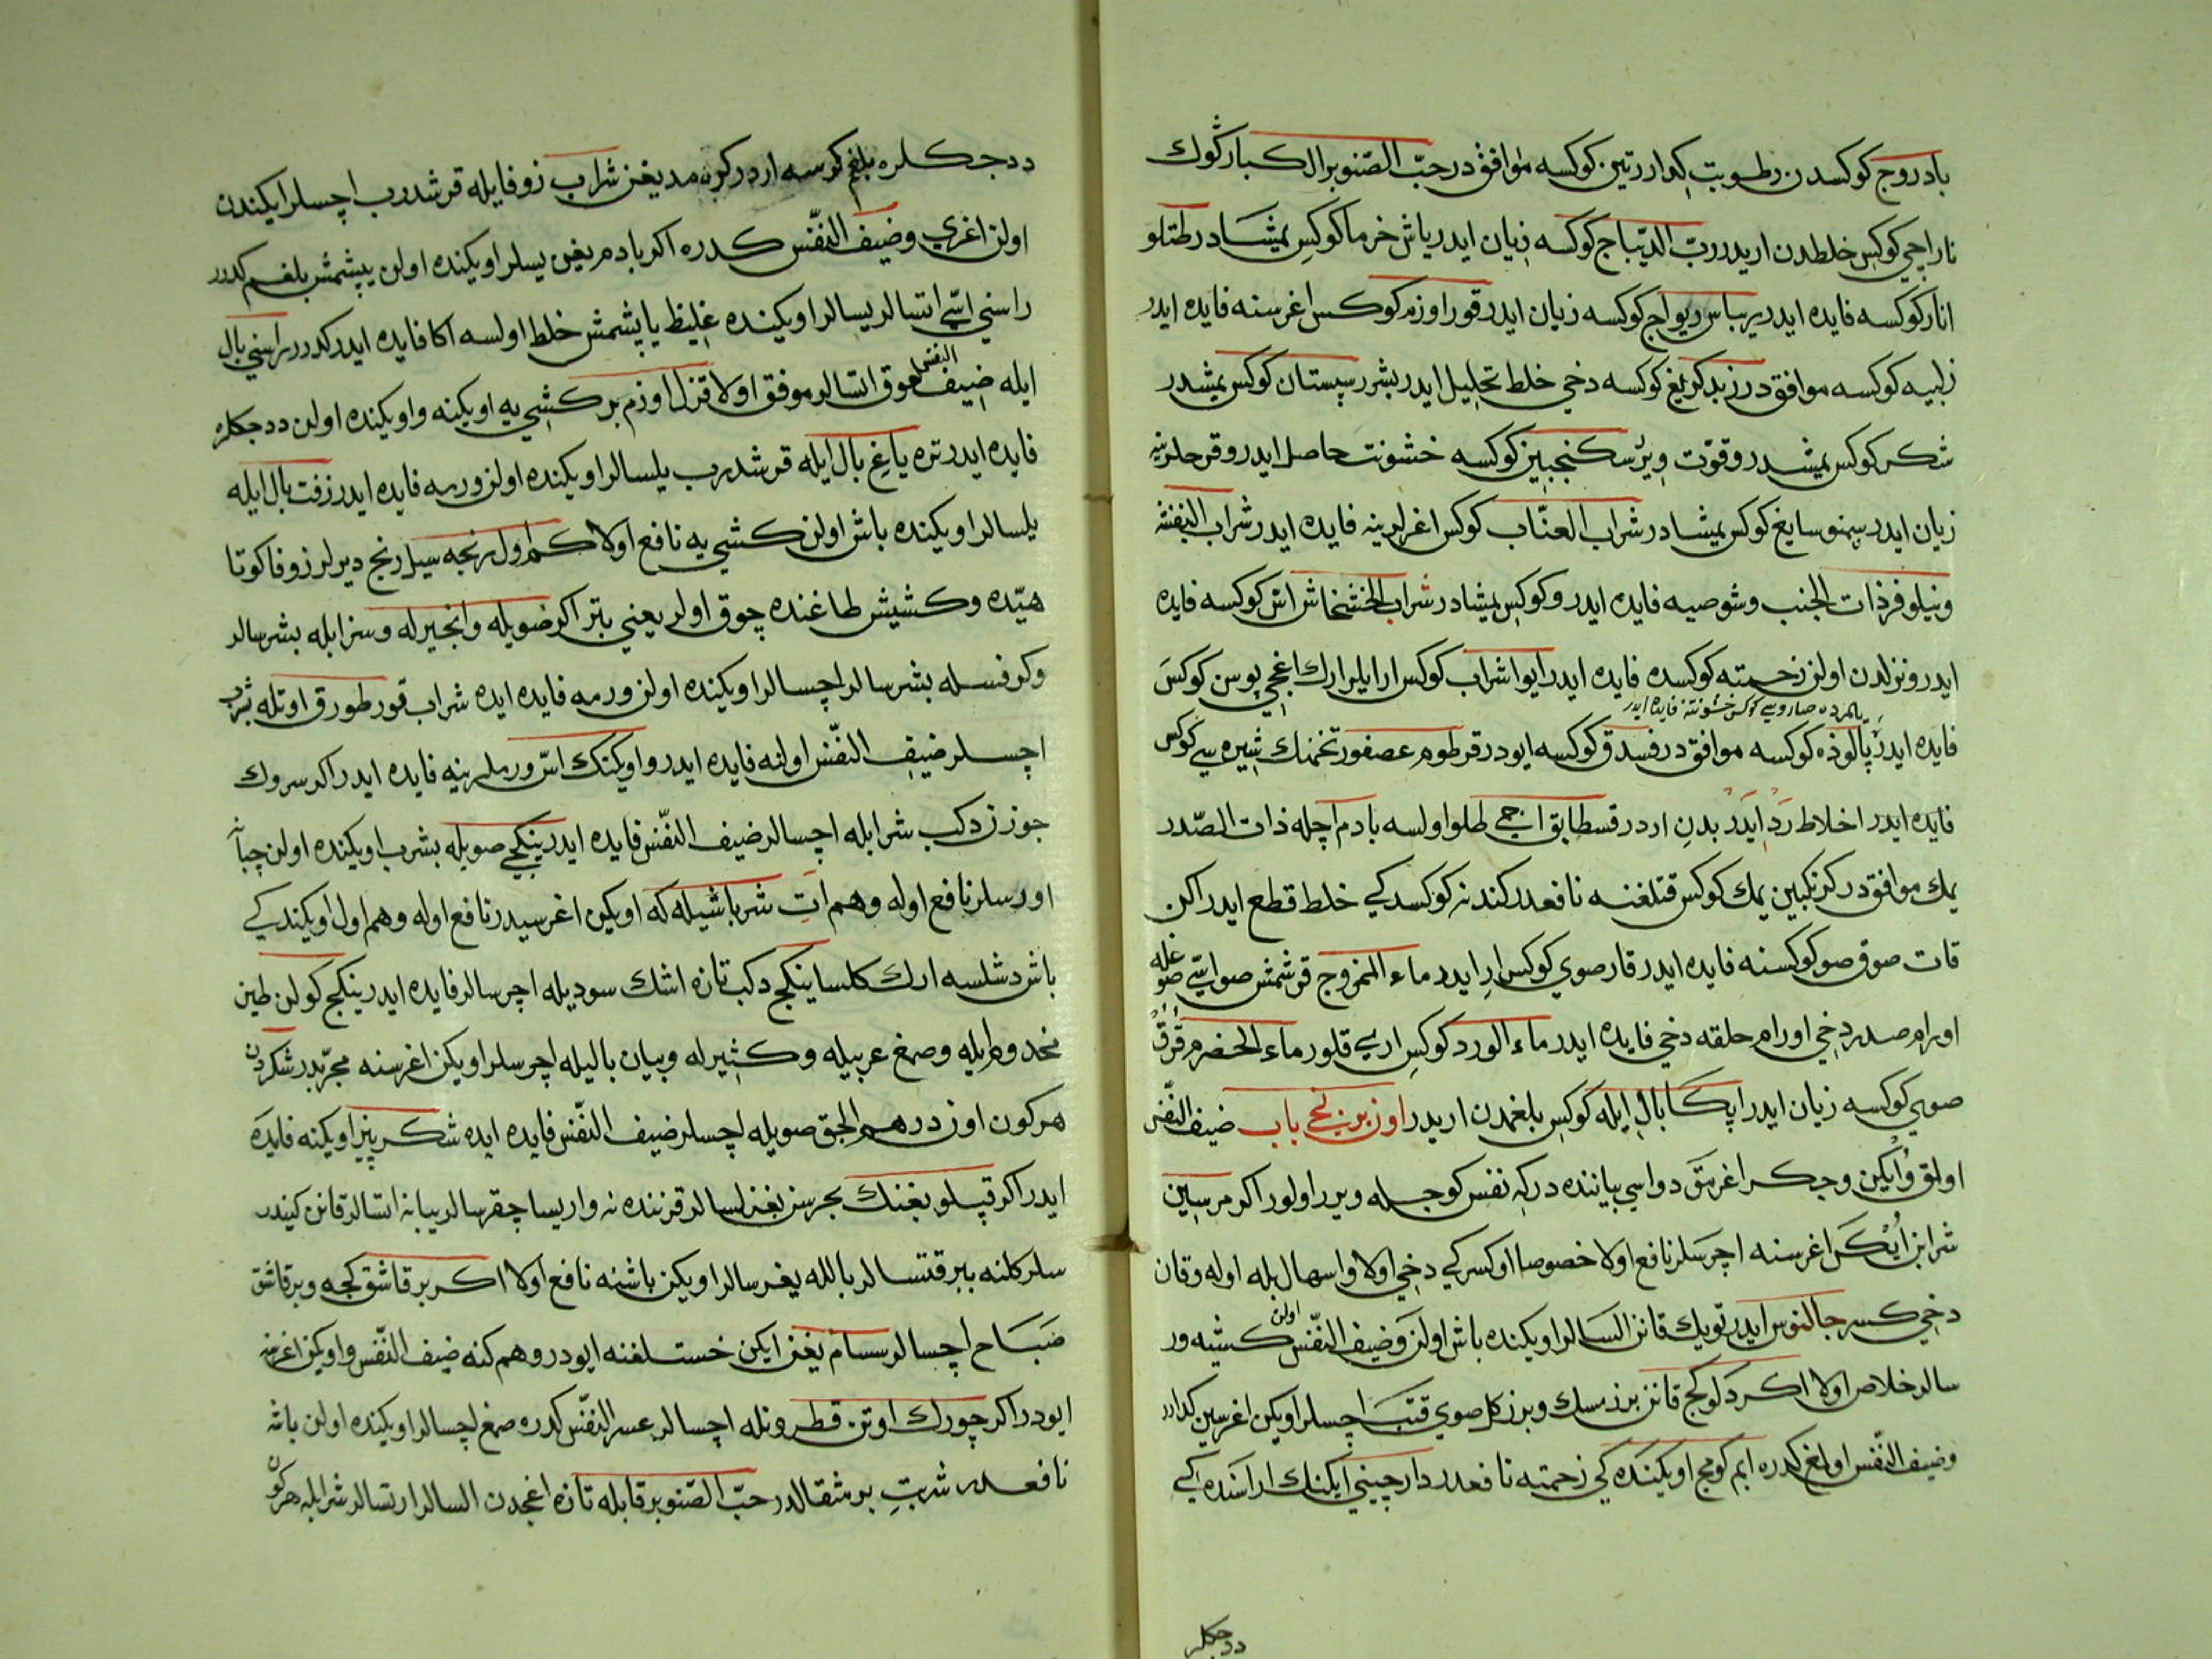 بادروج كوكسدن رطوبت كدارر تين كوكسه موافق در حبّ الصّنوبر الكبار كوك
نار اچي كوكس خلطدن اريدر ربّ الديباج كوكسه زيان ايدر ياش خرما كوكس يمشادر طتلو
انار كوكسه فايده ايدر يرباس ريواج كوكسه زيان ايدر قورا وزم كوكس اغرسنه فايده ايدر
زلبيه كوكسه موافق در زبد كريغ كوكسه دخي خلط تحليل ايدر بشرر سپستان كوكس يمشدر
شكر كوكس يمشدر وقوّت ويرر سكنجبين كوكسه خشونت حاصل ايدر وقرحلرينه
زيان ايدر سمنو سايغ كوكس يمشادر شراب العنّاب كوكس اغرلرينه فايده ايدر شراب البنفشه
ونيلوفر ذات الجنب وشوصيه فايده ايدر وكوكس يمشادر شراب الخشخاش اش كوكسه فايده
ايدر ونزلدن اولن زحمته كوكسده فايده ايدر ايوا شراب كوكس ارايلر ارك اغجي يوسن كوكس
يلمرده صارويسي كوكس خشونتنه فايده ايدر
فايده ايدر پالوذه كوكسه موافق در فسدق كوكسه ايودر قرطوم عصفور تخمنك شيره سي كوكس
فايده ايدر اخلاط رد ايدر بدن اردر قسطابق اجمي طلو اولسه بادم اچله ذات الصّدر
يمك موافق در كزنكبين يمك كوكس قتلغنه نافعدر كندنه كوكسدكي خلط قطع ايدر اكن
قات صوق صو كوكسنه فايده ايدر قار صوي كوكس ار ايدر ماء الممزوج قرشمش صو ايسّي صوغله
اورام صدر دخي اورام حلقه دخي فايده ايدر ماء الورد كوكس اري قلور ماء الحضرم قرق
صوي كوكسه زيان ايدر اپكا بال ايله كوكس بلغمدن اريدر اوزبرنجي باب ضيق النّفس
اولق وايكن وجكر اغرمق دواسي بياننده دركه نفس كوجله ويرر اولور اكر مرسين
شرابن ايكر اغرسنه اچرسلر نافع اولا خصوصا اوكسركي دخي اولا واسهال بله اوله وقان
دخي كسر جالنوس ايدر تويك قانن السالر اويكنده باش اولن وضيق النّفس اولن كشيه ور
سالر خلاص اولا اكر دلوكج قانن برز مسك وبرز كل صوي قتب اچسلر اويكن اغرسين كدارر
وضيق النّفس اولغ كدره ايم كومج اويكنده كي زحمته نافعدر دارچيني ايكنك اراسنده كي
ددجكلر
ددجكلره بلغم كرسه اردر كرنه مديغن شراب زوفايله قرشدرب اچسلر ايكندن
اولن اغري وضيق النفّس كدره اكر بادم يغن يسلر اويكنده اولن پيشمش بلغم كدرر
راسني اسّي اتسالر يسالر اويكنده غليظ يا پيشمش خلط اولسه اكا فايده ايدر كدرر راسني بال
ايله ضيق النفس لعوق اتسالر موفق اولا قزل اوزم بر كشي يه اويكنه واويكنده اولن ددجكلره
فايده ايدر تره ياغ بال ايله قرشدرب يلسالر اويكنده اولن ورمه فايده ايدر زفت بال ايله
يلسالر اويكنده باش اولن كشي يه نافع اولا كم اول رنجه سيل رنج ديرلر زوفا كوتا
هيّده وكشيش طاغنده چوق اولر يعني بتر اكر صويله وانجيرله وسزابله بشرسالر
وكرفسله بشرسالر اچسالر اويكنده اولن ورمه فايده ايده شراب قورطورق اوتله بشرب
اچسلر ضيق النفّس اولنه فايده ايدر واويكنك اسّ ورملرينه فايده ايدر اكر سروك
جوزز دكب شرابله اچسالر ضيق النفّس فايده ايدر ينكجي صويله بشرب اويكنده اولن چبآن
اورسلر نافع اوله وهم ات شرباشيله كه اويكن اغرسيدر نافع اوله وهم اول اويكندكي
باش دشلسه ارك كلسا ينكج دكب تازه اشك سوديله اچرسالر فايده ايدر ينكج كولن طين
مختوطايله وصمغ عربيله وكثيرله وبيان باليله اچرسلر اويكن اغرسنه مجرّبدر شكردن
هركون اوز درهم الجق صويله اچسلر ضيق النفّس فايده ايده شكر پنير اويكنه فايده
ايدر اكر قپلو بغنك بجرسن بغزلسالر قرننده نه واريسا چقرسالر يبانه اتسالر قانن كيندر
سلر كلنه ببر قتسالر بالله يغرسالر اويكن باشنه نافع اولا اكر بر قاشق كجه وبر قاشق
صباح اچسالر سسام يغن ايكن خستلغنه ايودر وهم كنه ضيق النّفس واويكن اغرسنه
ايودر اكر چورك اوتن قطرونله اچسالر عسر النفّس كدره صمغ اچسالر اويكنده اولن باشه
نافعدر شربت بر مثقالدر حبّ الصّنوبر قابله تازه اغجدن السالر ارتسالر شرابله هركون